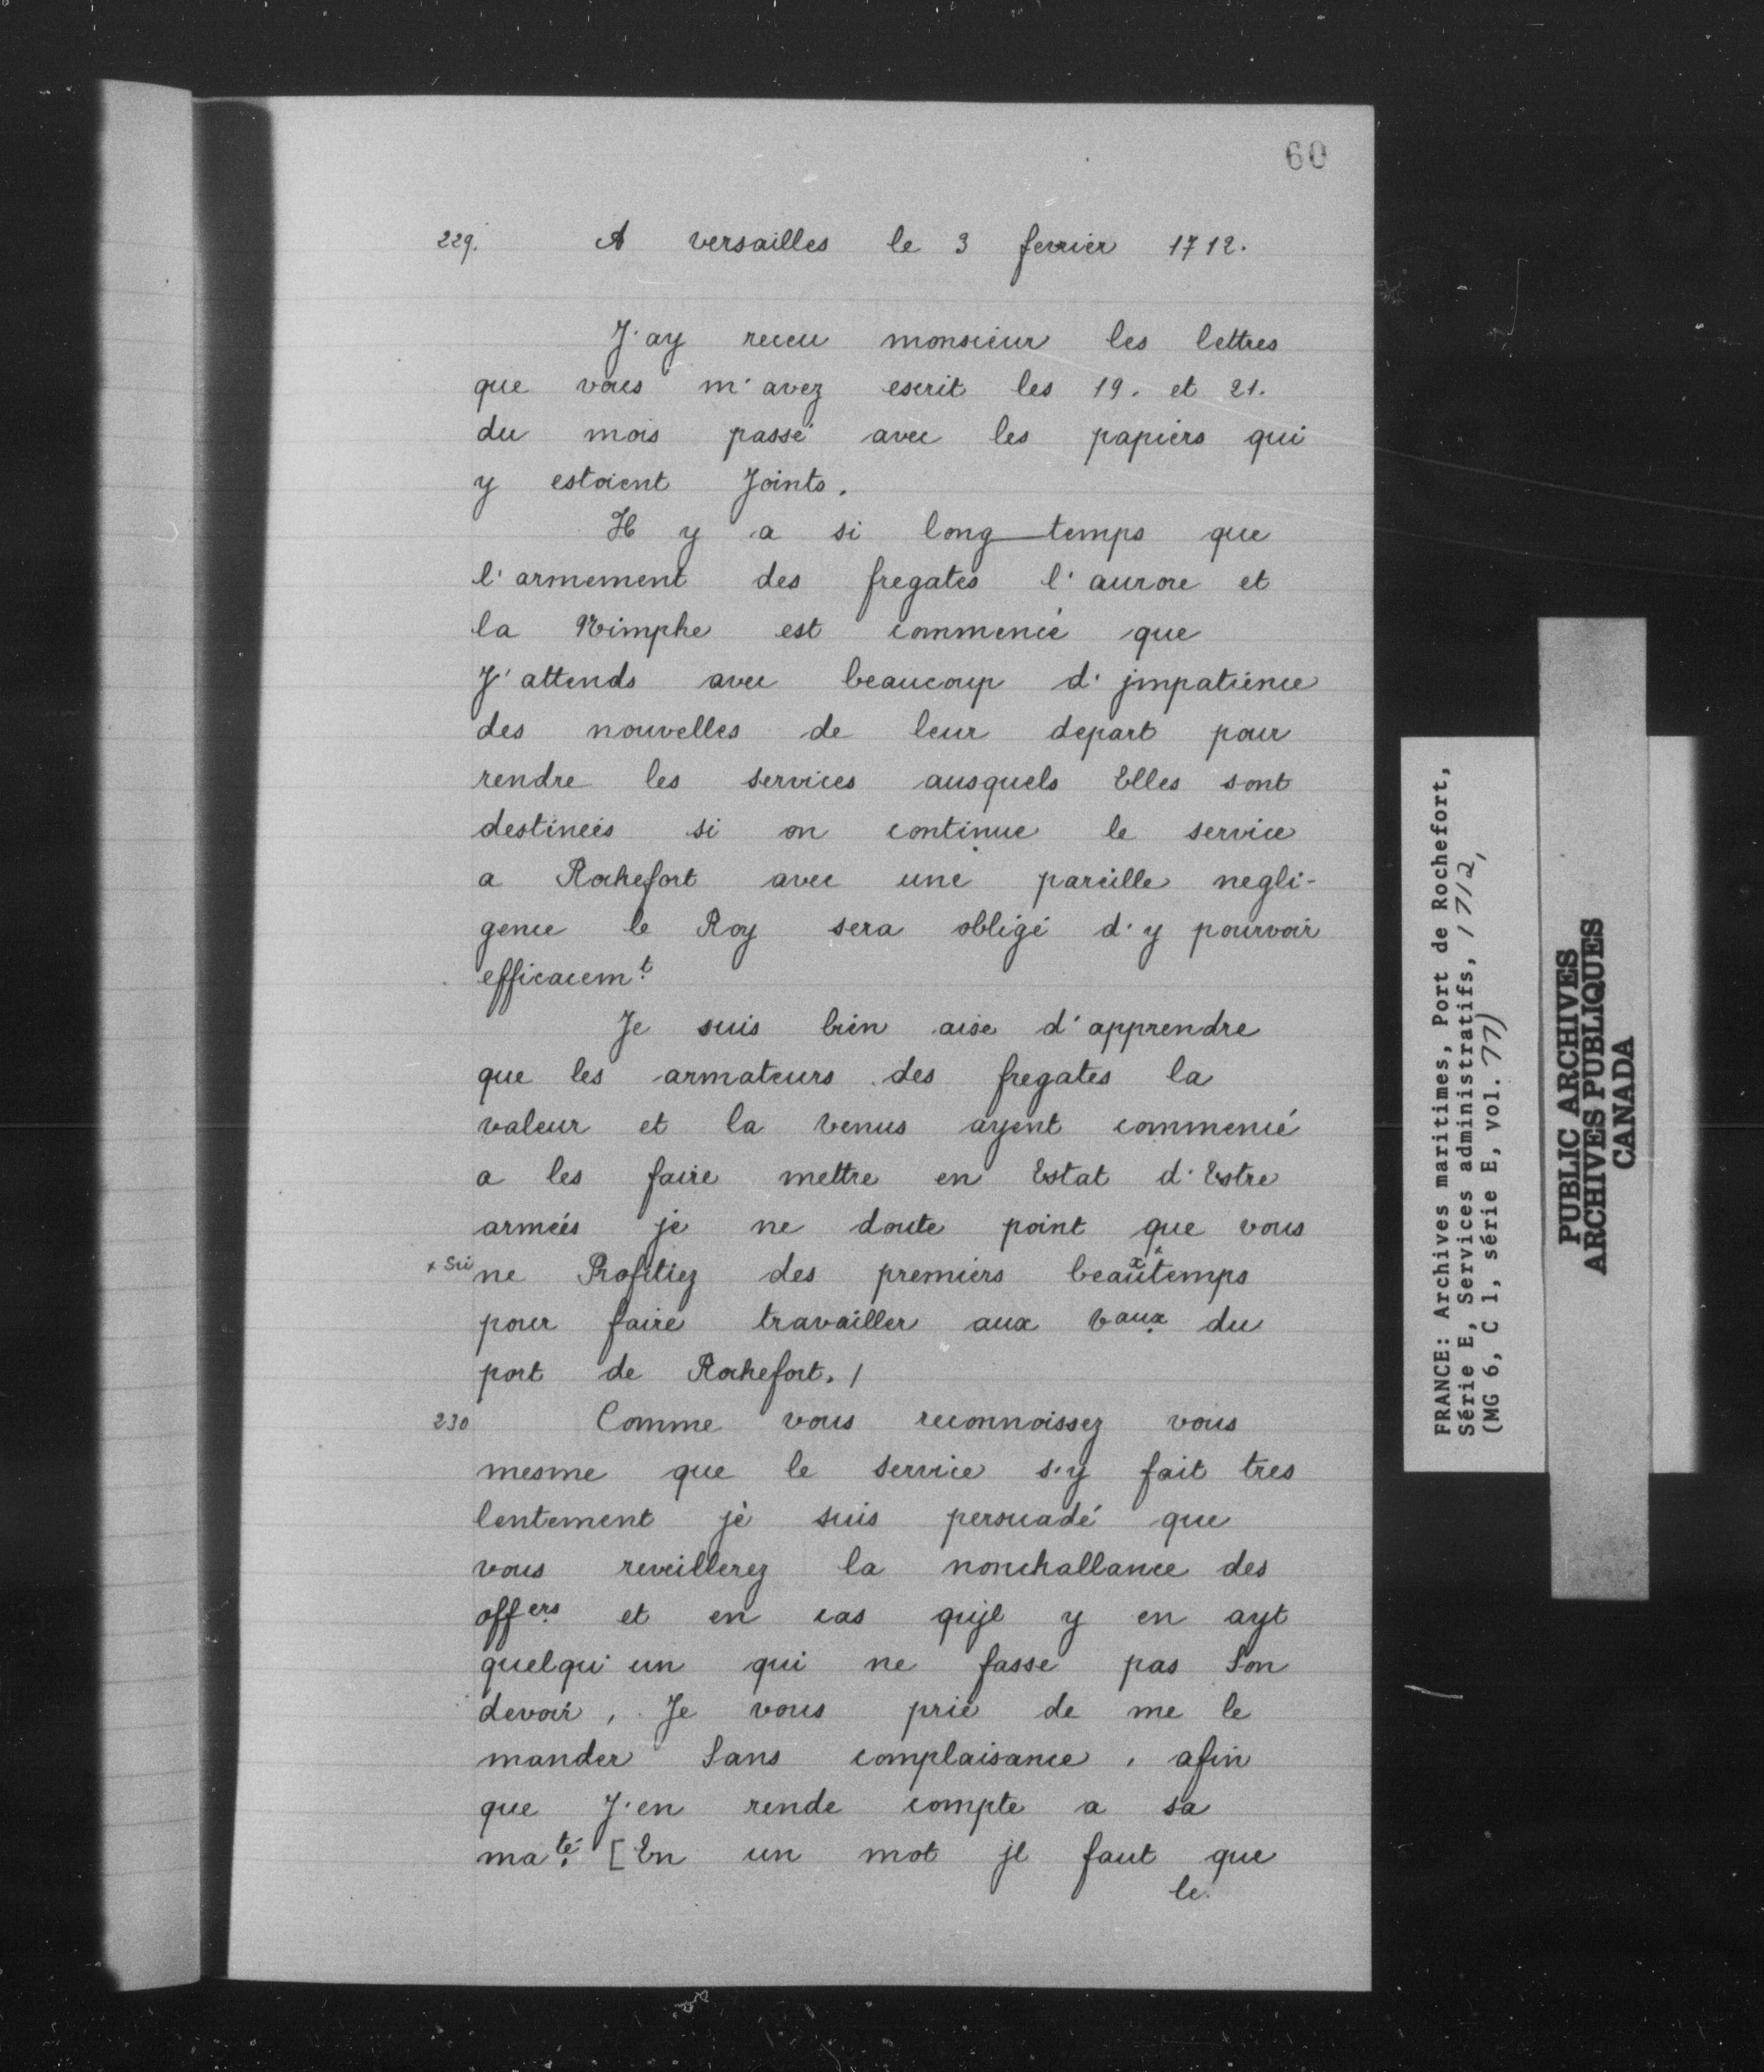 60
229. A versailles le 3 fevrier 1712.
J'ay receu monsieur les lettres
que vous m'avez escrit les 19. et 21.
du mois passé avec les papiers qui
y estoient Joints.
Il y a si long-temps que
l'armement des fregates l'aurore et
la Nimphe est commencé que
J'attends avec beaucoup d'jmpatience
des nouvelles de leur depart pour
rendre les services ausquels Elles sont
destinées si on continue le service
a Rochefort avec une pareille negli-
gence le Roy sera obligé d'y pourvoir
efficacemt.
Je suis bien aise d'apprendre
que les armateurs des fregates la
valeur et la venus ayent commencé
a les faire mettre en Estat d'Estre
armées je ne doute point que vous
x Sic ne Profitiez des premiers beaux x temps
pour faire travailler aux vaux. du
port de Rochefort. /
230 Comme vous reconnoissez vous
mesme que le service s'y fait tres
lentement je suis persuadé que
vous reveillerez la nonchallance des
offers. et en cas qu'jl y en ayt
quelqu'un qui ne fasse pas Son
devoir, Je vous prie de me le
mander Sans complaisance, afin
que J'en rende compte a sa
maté. [En un mot jl faut que
le
FRANCE: Archives maritimes, Port de Rochefort,
Série E, Services administratifs, 1712,
(MG 6, C 1, série E, vol. 77)
PUBLIC ARCHIVES
ARCHIVES PUBLIQUES
CANADA